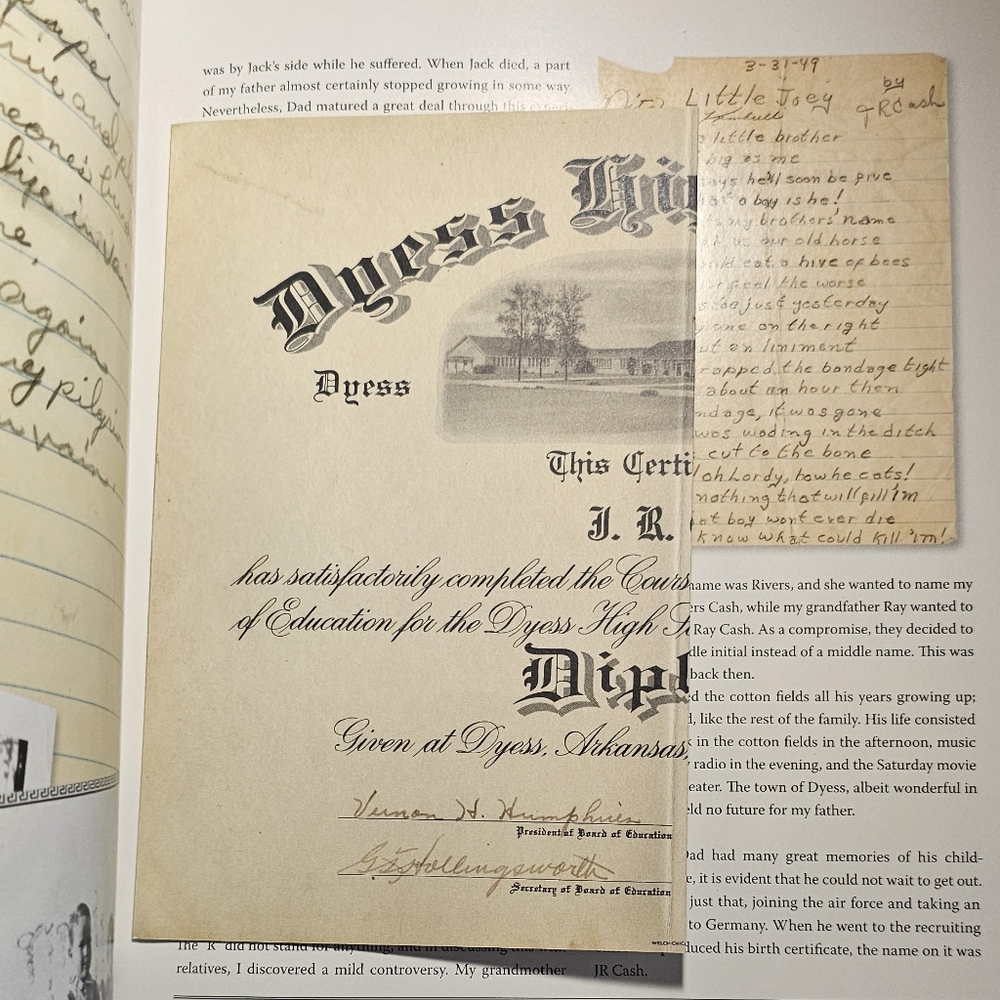 paper
True and
someone's
life in vain
me.
again
pilgrim
vain
was by Jack's side while he suffered. When Jack died, a part
of my father almost certainly stopped growing in some way.
Nevertheless, Dad matured a great deal through this
Dyess
Dyess
This Certi
J. R.
has satisfactorily completed the Cours
of Education for the Dyess High
Dipl
Given at Dyess, Arkansas,
Vernon H. Humphries
President of Board of Education
Hollingsworth
Secretary of Board of Education
WELCH-CHIC
The "R" did not stand for anything, and in
relatives, I discovered a mild controversy. My grandmother
3-31-49
Little Joey
by
JRCash
little brother
big as me
says he'll soon be five
a boy is he!
my brothers' name
our old horse
eat a hive of bees
feel the worse
just yesterday
one on the right
on liniment
the bandage tight
about an hour then
it was gone
was wading in the ditch
cut to the bone
oh Lordy, how he eats!
nothing that will fill 'm
boy wont ever die
know what could kill 'im!
name was Rivers, and she wanted to name my
ers Cash, while my grandfather Ray wanted to
Ray Cash. As a compromise, they decided to
dle initial instead of a middle name. This was
back then.
ed the cotton fields all his years growing up;
d, like the rest of the family. His life consisted
in the cotton fields in the afternoon, music
radio in the evening, and the Saturday movie
eater. The town of Dyess, albeit wonderful in
eld no future for my father.
Dad had many great memories of his child-
e, it is evident that he could not wait to get out.
just that, joining the air force and taking an
to Germany. When he went to the recruiting
duced his birth certificate, the name on it was
JR Cash.